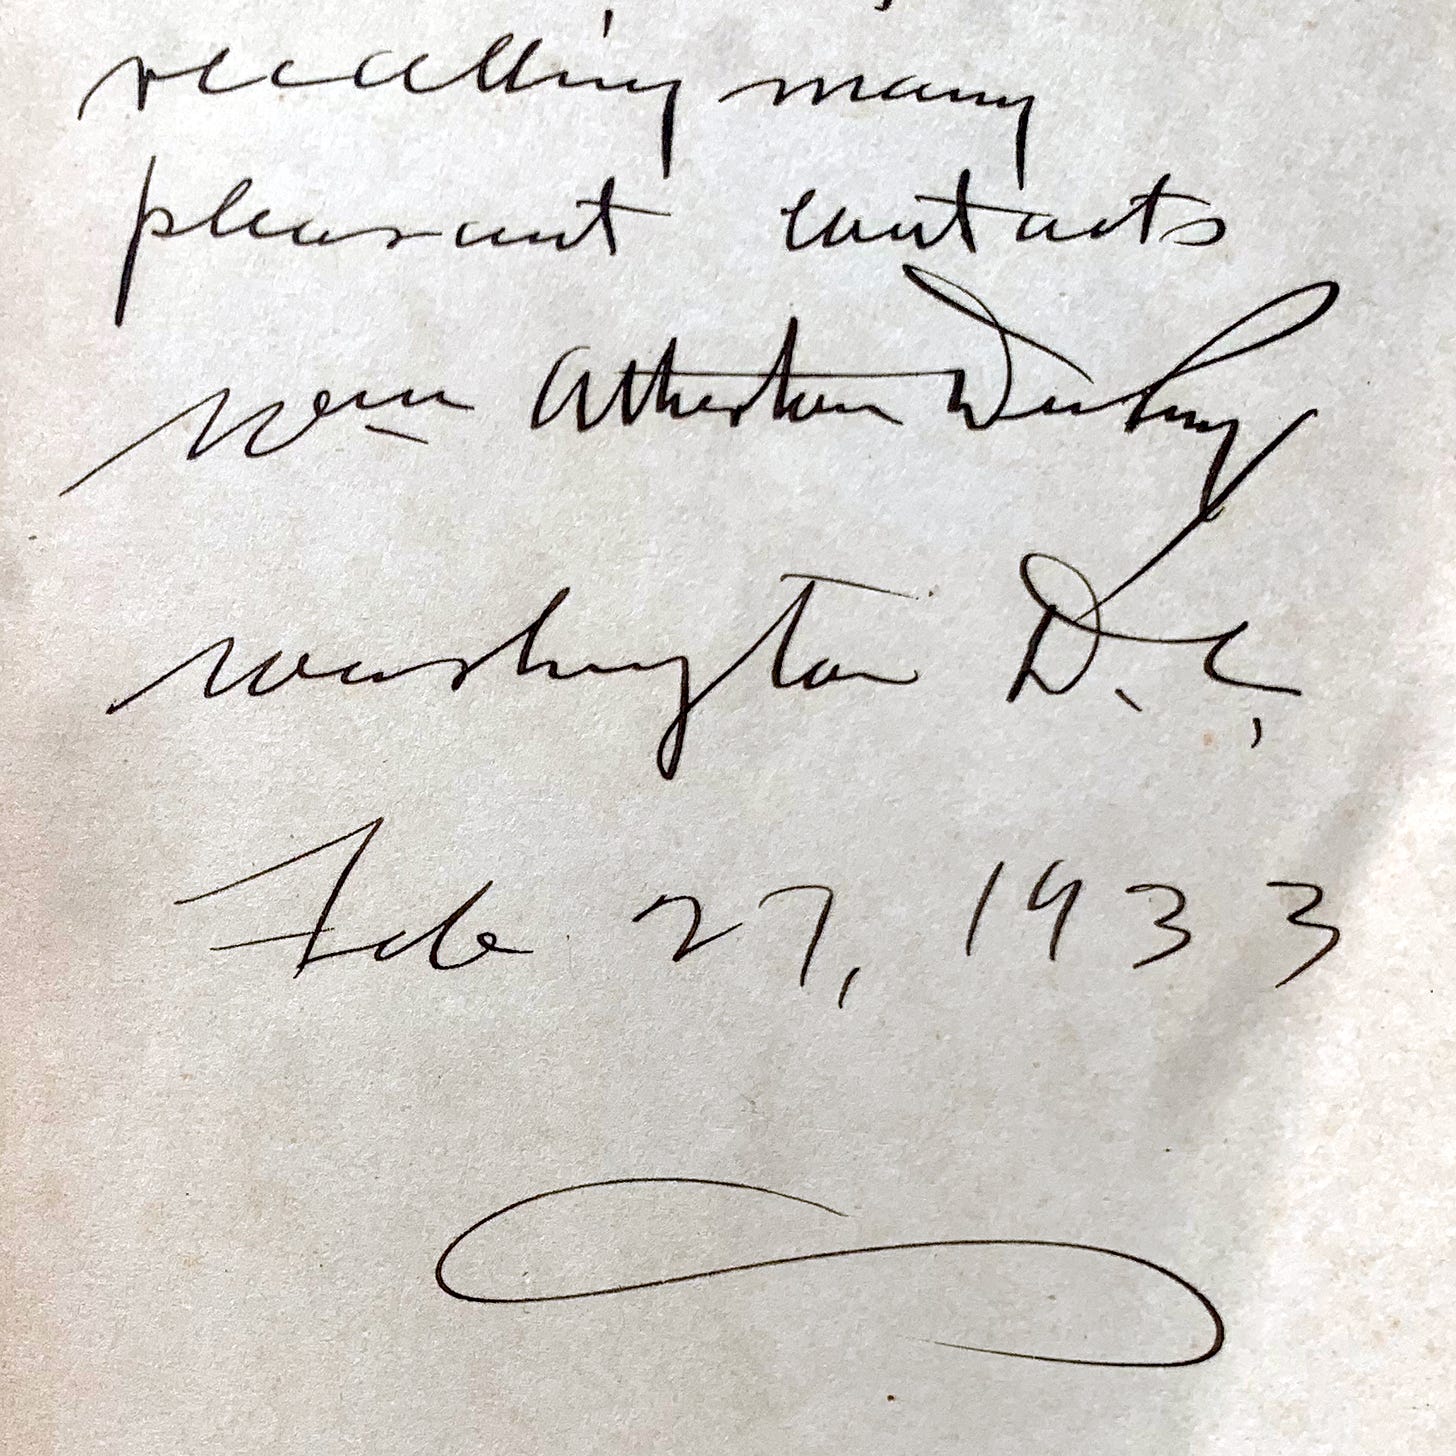 recalling many
pleasant contacts
Wm Atherton DuPuy
Washington D.C.
Feb 27, 1933